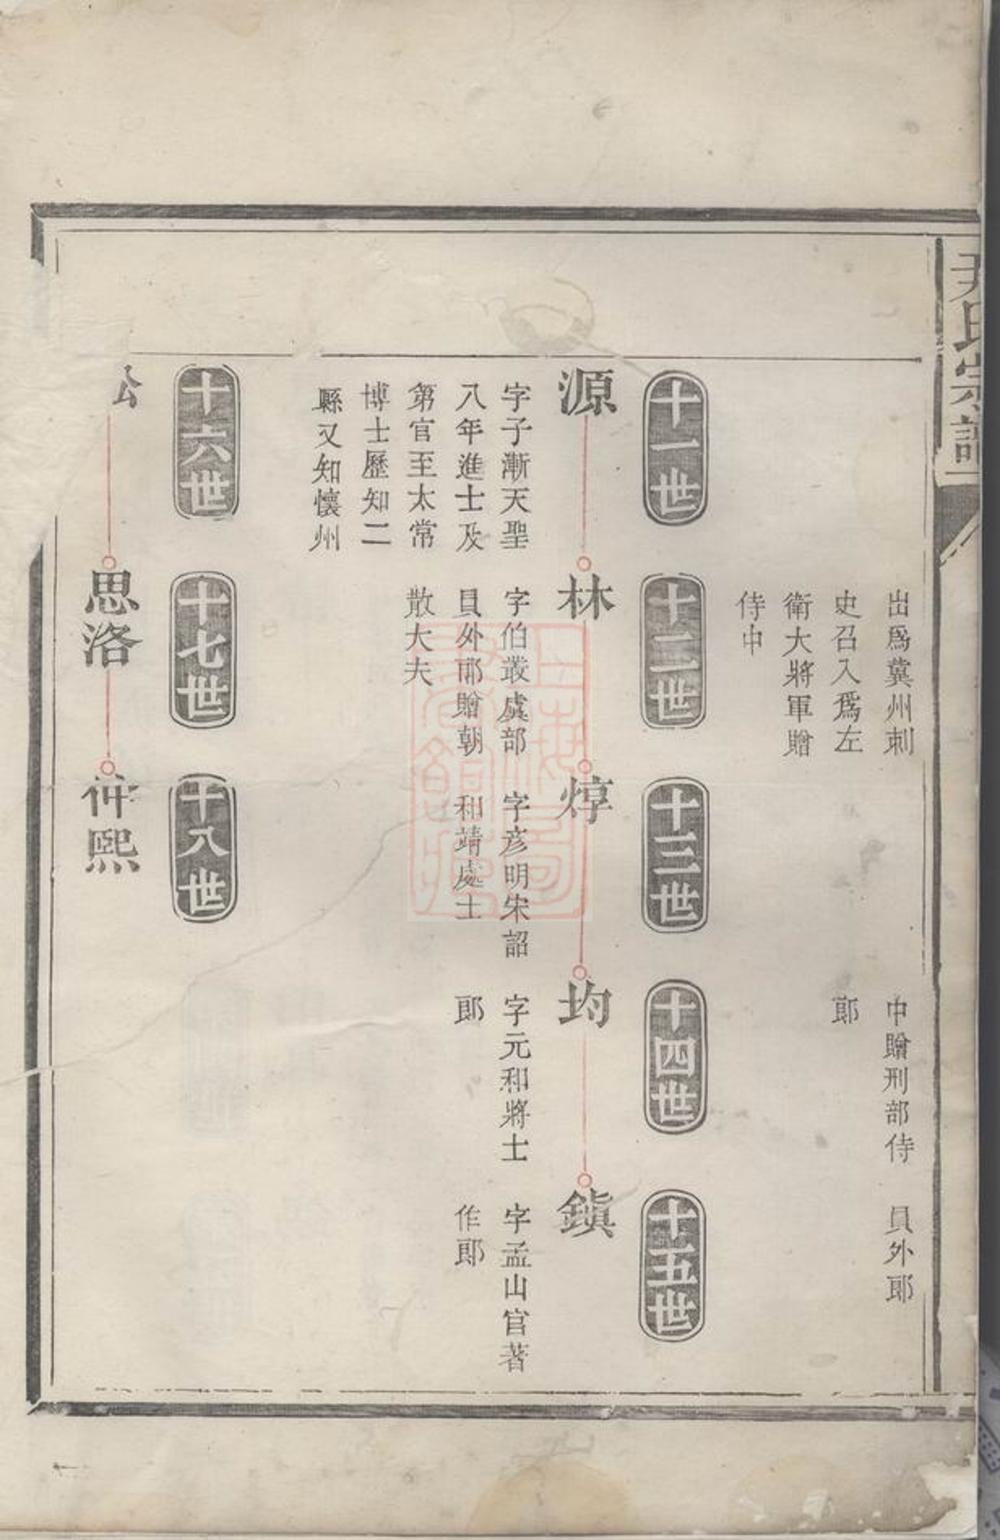 尹氏宗譜
出爲冀州刺
史召入爲左
衛大將軍贈
侍中
中贈刑部侍
郎
員外郎
十一世
十二世
十三世
十四世
十五世
源
字子漸天聖
八年進士及
第官至太常
博士歷知二
縣又知懷州
林
字伯叢虞部
員外郎贈朝
散大夫
焞
字彥明宋詔
和靖處士
均
字元和將士
郎
鎭
字孟山官著
作郎
十六世
十七世
十八世
思洛
仲熙